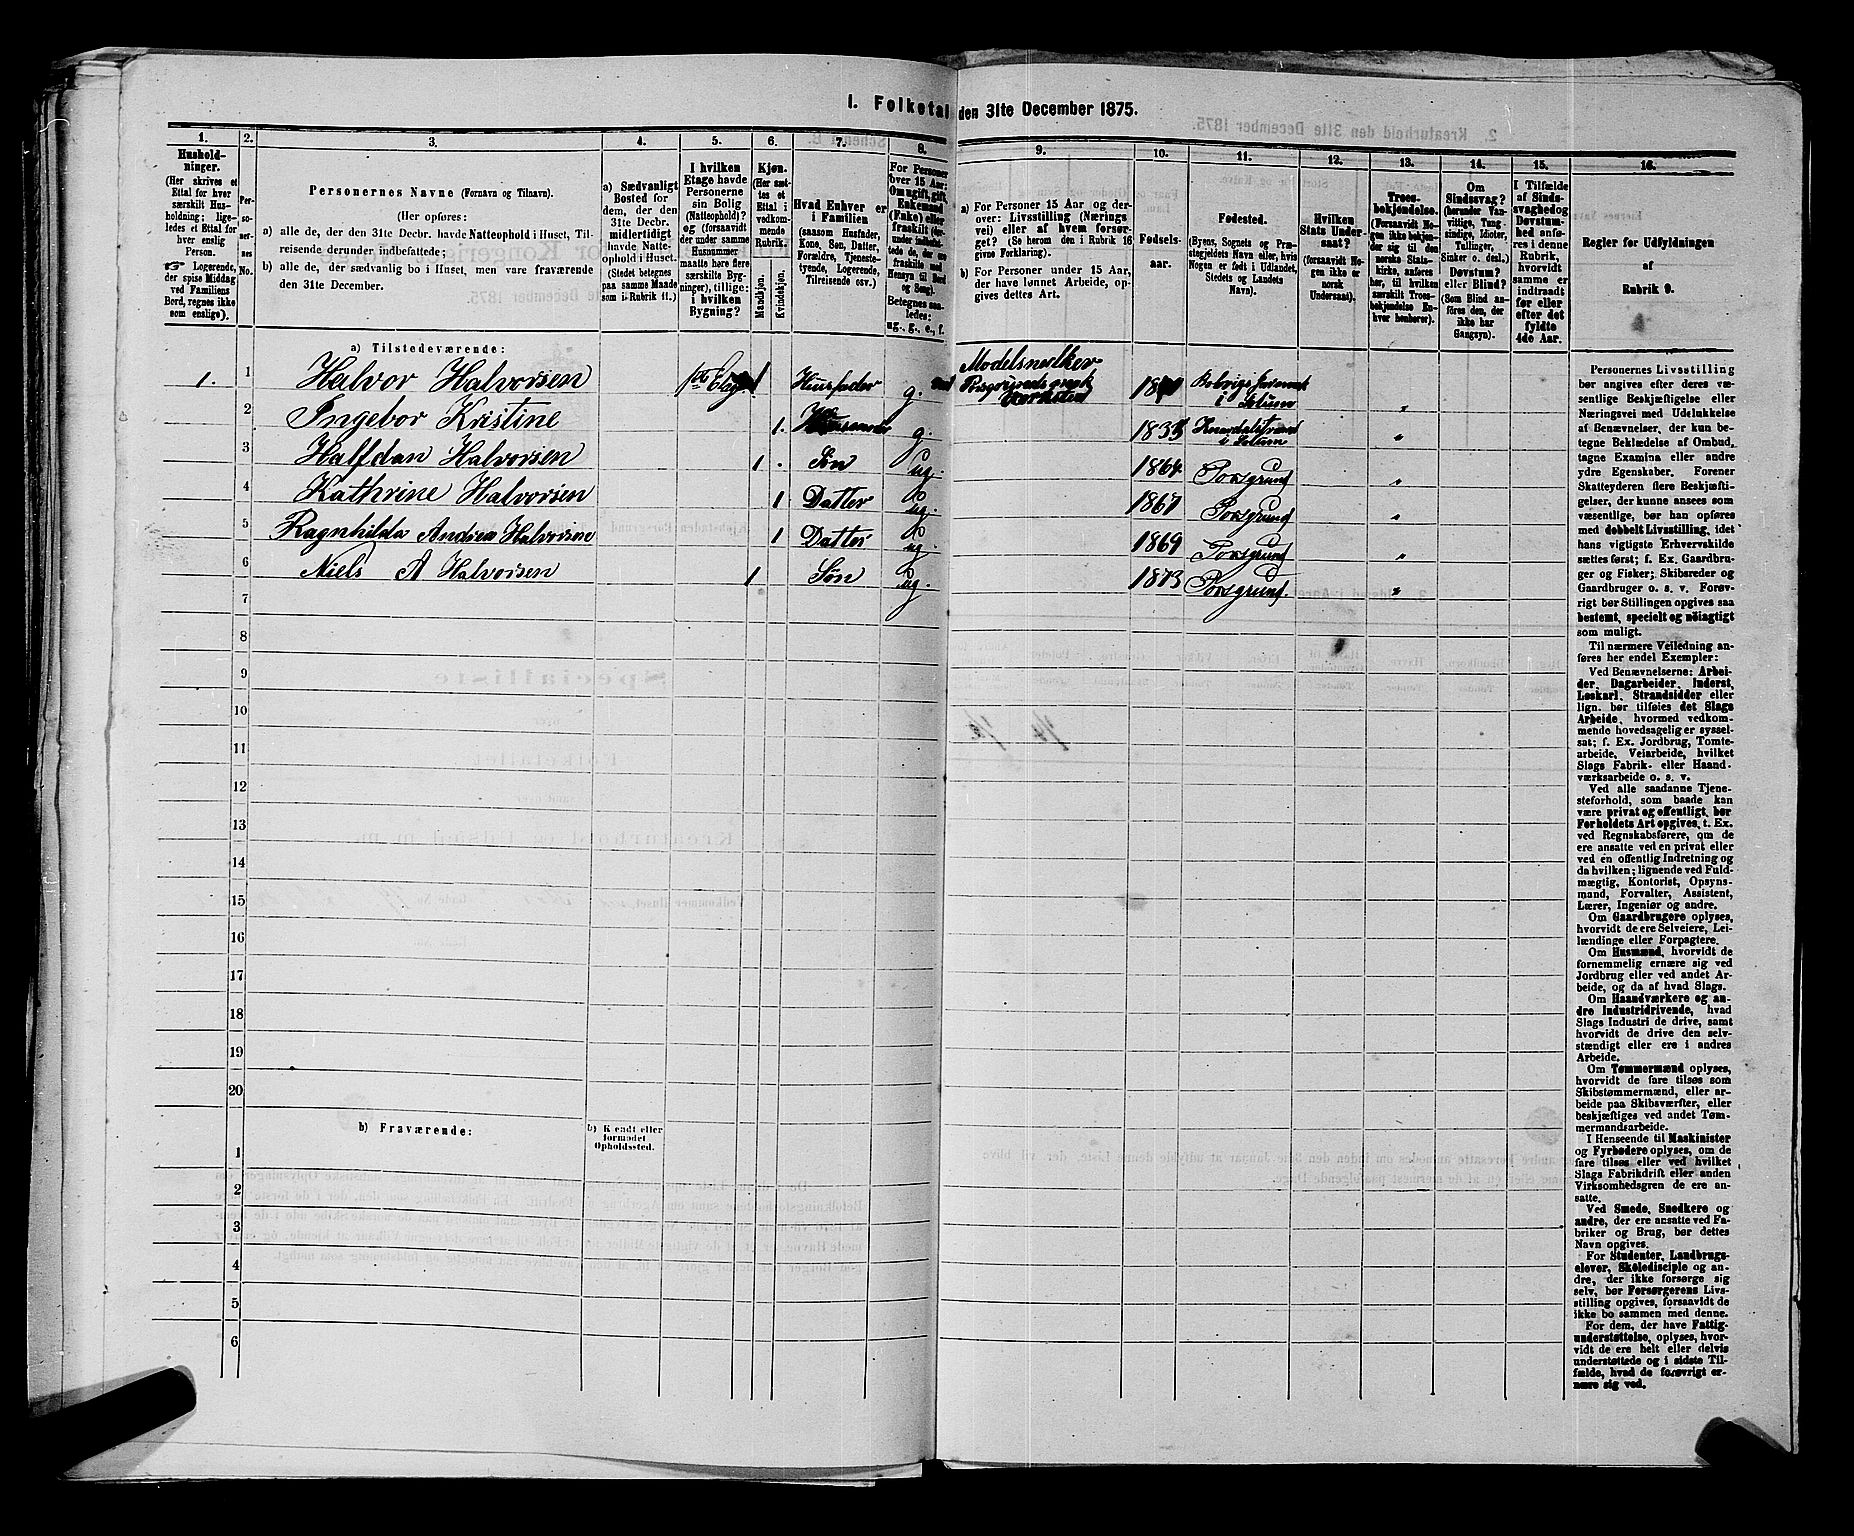 1. Folketal den 31te December 1875.
1. 2. 3. 4. 5. 6. 7. 8. 9. 10. 11. 12. 13. 14. 15. 16.
Hushold-
ninger.
(Her skrives et
Ettal for hver
særskilt Hus-
holdning; lige-
ledes et Ettal for
hver enslig
Person.
☞ Logerende,
der spise Middag
ved Familiens
Bord, regnes ikke
som enslige).
Per-
so-
ner-
nes
No.
Personernes Navne (Fornavn og Tilnavn).
(Her opføres:
a) alle de, der den 31te Decbr. havde Natteophold i Huset, Til-
reisende derunder indbefattede;
b) alle de, der sædvanlig bo i Huset, men vare fraværende
den 31te December.
a) Sædvanligt
Bosted for
dem, der den
31te Decbr.
midlertidigt
havde Natte-
ophold i Huset.
(Stedet betegnes
paa samme Maade
som i Rubrik 11.)
I hvilken
Etage havde
Personerne
sin Bolig
(Natteophold)?
og (forsaavidt
der under samme
Husnummer
maatte høre flere
særskilte Byg-
ninger), tillige:
i hvilken
Bygning?
Kjøn.
(Her sæt-
tes et
Ettal i
vedkom-
mende
Rubrik.
Mandkjøn.
Kvindekjøn.
Hvad Enhver er
i Familien
(saasom Husfader,
Kone, Søn, Datter,
Forældre, Tjeneste-
tyende, Logerende,
Tilreisende osv.)
For Personer
over 15 Aar:
Om ugift, gift,
Enkemand
(Enke) eller
fraskilt
Betegnes saa-
ledes:
ug., g., e., f.
a) For Personer 15 Aar og der-
over: Livsstilling (Nærings
vei) eller af hvem forsør-
get? (Se herom den i Rubrik 16
givne Forklaring).
b) For Personer under 15 Aar,
der have lønnet Arbeide, op-
gives dettes Art.
Fødsels-
aar.
Fødested.
(Byens, Sognets og Præ-
stegjeldets Navn eller, hvis
Nogen er født i Udlandet,
Stedets og Landets
Navn).
Hvilken
Stats Under-
saat?
(forsaavidt No-
gen ikke er
norsk
Undersaat).
Troes-
bekjendelse.
(Forsaavidt No-
gen ikke bekjen-
der sig til den
norske Stats-
kirke, anføres
her, til hvilken
særskilt Troes-
bekjendelse En-
hver henhører).
Om
Sindssvag?
(herunder Van-
vittige, Tung-
sindige, Idioter,
Tullinger,
Sinker o. desl.)
Døvstum?
eller Blind?
(Som Blind an-
føres den, der
ikke har
Gangsyn).
I Tilfælde
af Sinds-
svaghed og
Døvstum-
hed anfø-
res i denne
Rubrik,
hvorvidt
samme er
indtraadt
før eller
efter det
fyldte
4de Aar.
Regler for Udfyldningen
af
Rubrik 9.
a) Tilstedeværende:
1. 1 Halvor Halvorsen 1ste Etage 1 Husfader g. Porsgrund i Solum "
2 Ingebor Kristine 1. g. 1833 i Solum "
3 Halfdan Halvorsen 1. Søn ug. 1864 Porsgrund "
4 Kathrine Halvorsen 1 Datter ug. 1867 Porsgrund "
5 Ragnhilda Andrea Halvorsen 1 Datter ug. 1869 Porsgrund "
6 Niels A Halvorsen 1 Søn ug. 1873 Porsgrund. "
7
8
9
10
11
12
13
14
15
16
17
18
19
20
b) Fraværende:
b) Kjendt eller
formodet
Opholdssted.
1
2
3
4
5
6
Personernes Livsstilling
bør angives efter deres væ-
sentlige Beskjæftigelse eller
Næringsvei med Udelukkelse
af Benævnelser, der kun be-
tegne Beklædelse af Ombud,
tagne Examina eller andre
ydre Egenskaber. Forener
Skatteyderen flere Beskjæfti-
gelser, der kunne ansees som
væsentlige, bør han opføres
med dobbelt Livsstilling, idet
hans vigtigste Erhvervskilde
sættes først; f. Ex. Gaardbru-
ger og Fisker; Skibsreder og
Gaardbruger o. s. v. Forøv-
rigt bør Stillingen opgives saa
bestemt, specielt og nøiagtigt
som muligt.
Til nærmere Veiledning an-
føres her endel Exempler:
Ved Benævnelserne: Arbei-
der, Dagarbeider, Inderst,
Løskarl, Strandsidder eller
lign. bør tilføies det Slags
Arbeide, hvormed vedkom-
mende hovedsagelig er syssel-
sat; f. Ex. Jordbrug, Tomte-
arbeide, Veiarbeide, hvilket
Slags Fabrik- eller Haand-
værksarbeide o. s. v.
Ved alle saadanne Tjene-
steforhold, som baade kan
være privat og offentligt, bør
Forholdets Art opgives, t. Ex.
ved Regnskabsførere, om de
ere ansatte ved en privat eller
ved en offentlig Indretning og
da hvilken; lignende ved Fuld-
mægtig, Kontorist, Opsyns-
mand, Forvalter, Assistent,
Lærer, Ingeniør og andre.
Om Gaardbrugere oplyses,
hvorvidt de ere Selveiere, Lei-
lændinge eller Forpagtere.
Om Husmænd, hvorvidt de
fornemmelig ernære sig ved
Jordbrug eller ved andet Ar-
beide, og da af hvad Slags.
Om Haandværkere og an-
dre Industridrivende, hvad
Slags Industri de drive, samt
hvorvidt de drive den selv-
stændigt eller ere i andres
Arbeide.
Om Tømmermænd oplyses,
hvorvidt de fare tilsøs som
Skibstømmermænd, eller ar-
beide paa Skibsværfter, eller
beskjæftiges ved andet Tøm-
mermandsarbeide.
I Henseende til Maskinister
og Fyrbødere oplyses, om de
fare tilsøs eller ved hvilket
Slags Fabrikdrift eller anden
Virksomhedsgren de ere an-
satte.
Ved Smede, Snedkere og
andre, der ere ansatte ved Fa-
briker og Brug, bør dettes
Navn opgives.
For Studenter, Landbrugs-
elever, Skoledisciple og an-
dre, der ikke forsørge sig
selv, bør Forsørgerens Livs-
stilling opgives, forsaavidt de
ikke bo sammen med denne.
For dem, der have Fattig-
understøttelse, oplyses, hvor-
vidt de ere helt eller delvis
understøttede og i sidste Til-
fælde, hvad de forøvrigt er-
nære sig ved.